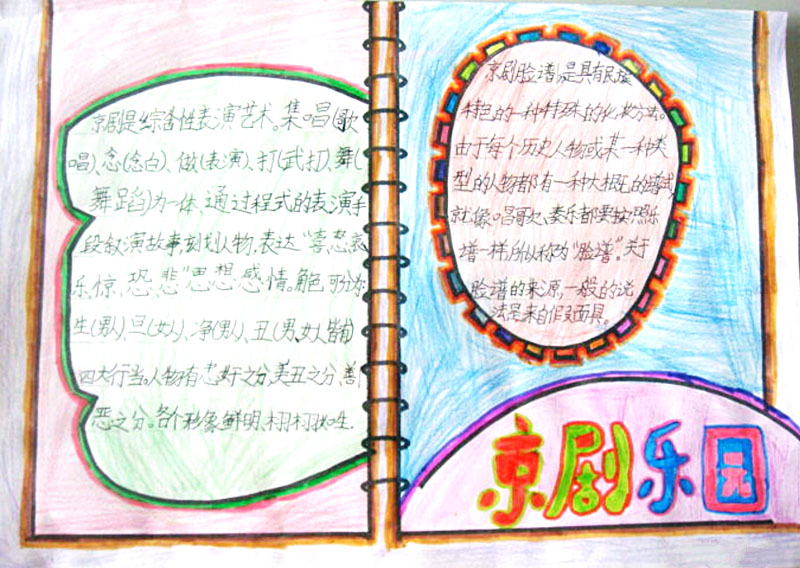 京剧是综合性表演艺术。集唱(歌
唱)、念(念白)、做(表演)、打(武打)、舞(
舞蹈)为一体、通过程式的表演手
段叙演故事,刻划人物,表达"喜、怒、哀、
乐、惊、恐、悲"思想感情。角色可分为
生(男人)、旦(女人)、净(男人)、丑(男、女人皆有)
四大行当。人物有忠奸之分,美丑之分、善
恶之分。各个形像鲜明、栩栩如生.
京剧脸谱,是具有民族
特色的一种特殊的化妆方法。
由于每个历史人物或某一种类
型的人物都有一种大概的谱式,
就像唱歌、奏乐都要按照乐
谱一样,所以称为"脸谱"。关于
脸谱的来源,一般的说
法是来自假面具。
京剧乐园